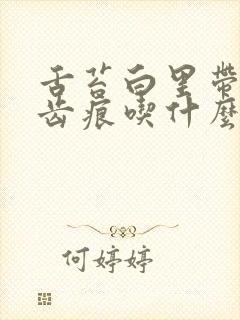 舌苔白里帶
齿痕喫什麼
何婷婷